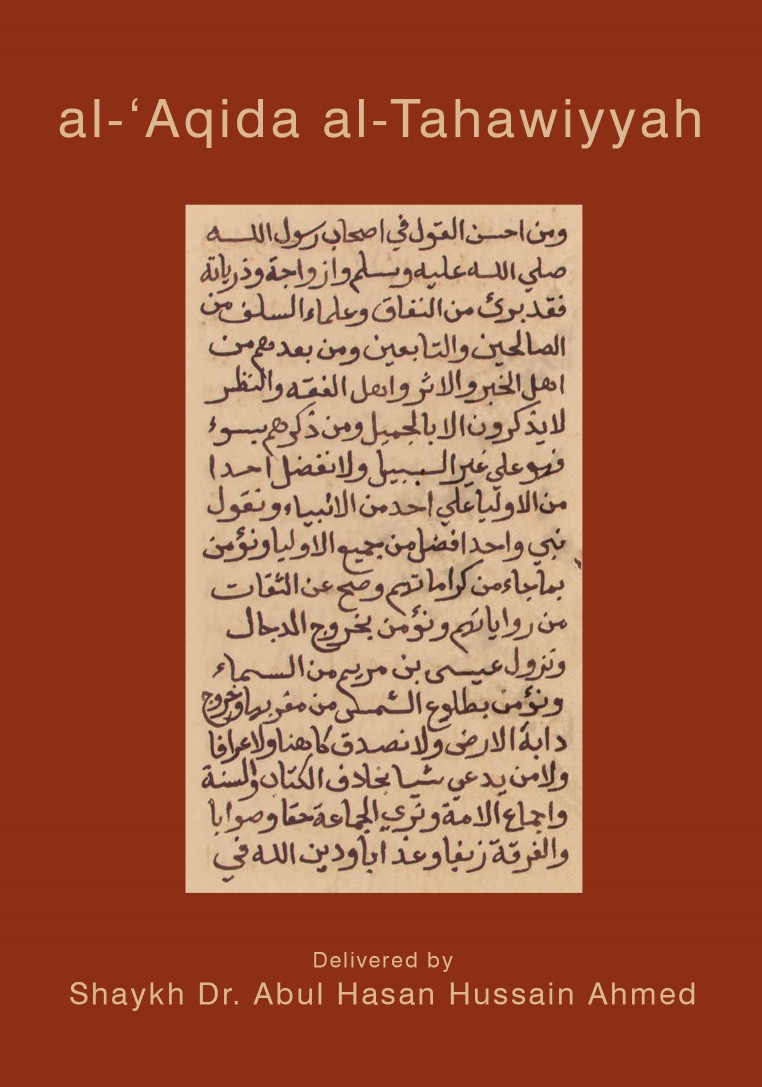 al-‘Aqida al-Tahawiyyah
ومن احسن القول في اصحاب رسول الله
صلي الله عليه وسلم وازواجة وذرياته
فقد برئ من النفاق وعلماء السلف من
الصالحين والتابعين ومن بعدهم من
اهل الخبر والاثر واهل الفقه والنظر
لا يذكرون الا بالجميل ومن ذكرهم بسوء
فهو علي غير السبيل ولا نفضل احدا
من الاوليا علي احد من الانبياء ونقول
نبي واحد افضل من جميع الاوليا ونؤمن
بما جاء من كراماتهم وصح عن الثقات
من رواياتهم ونؤمن بخروج الدجال
ونزول عيسى بن مريم من السماء
ونؤمن بطلوع الشمس من مغربها وخروج
دابة الارض ولا نصدق كاهنا ولا عرافا
ولا من يدعي شيا بخلاف الكتاب والسنة
واجماع الامة ونري الجماعة حقا وصوابا
والفرقة زيغا وعذابا ودين الله في
Delivered by
Shaykh Dr. Abul Hasan Hussain Ahmed